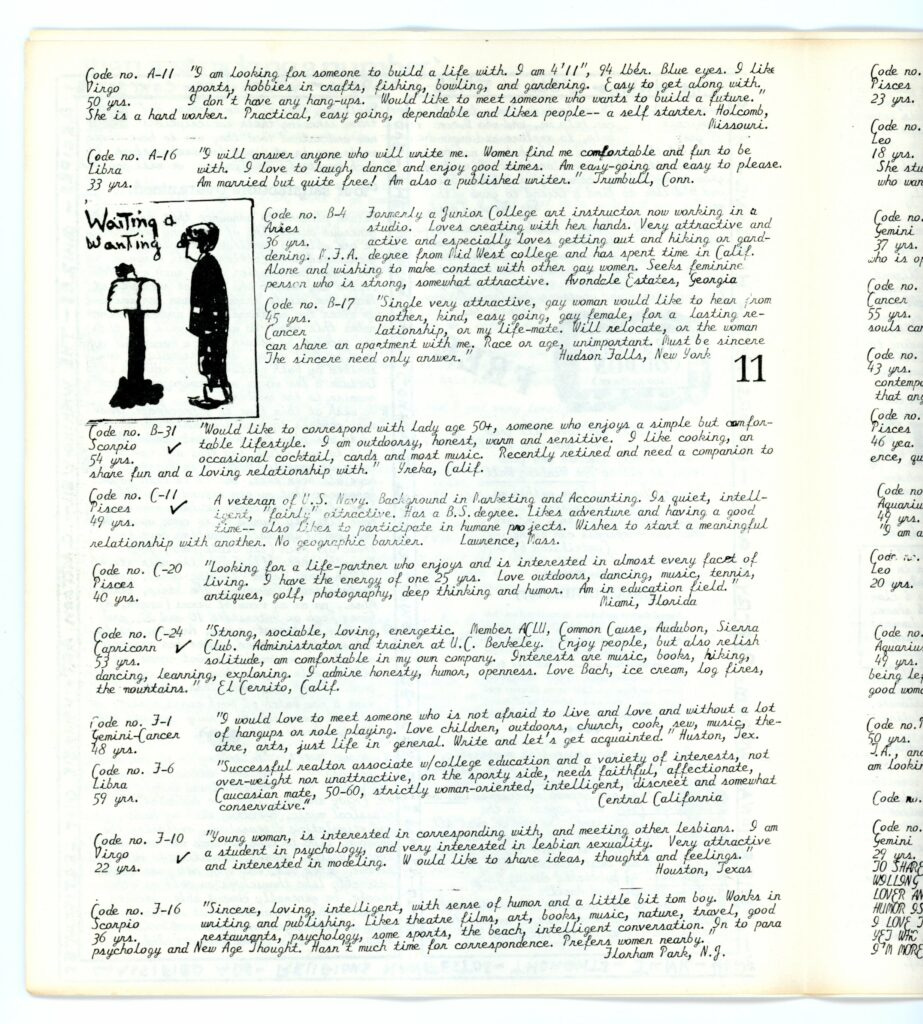 Code no. A-11 "I am looking for someone to build a life with. I am 4'11", 94 lber. Blue eyes. I like
Virgo sports, hobbies in crafts, fishing, bowling, and gardening. Easy to get along with.
50 yrs. I don't have any hang-ups. Would like to meet someone who wants to build a future."
She is a hard worker. Practical, easy going, dependable and likes people-- a self starter. Holcomb,
Missouri.
Code no. A-16 "I will answer anyone who will write me. Women find me comfortable and fun to be
Libra with. I love to laugh, dance and enjoy good times. Am easy-going and easy to please.
33 yrs. Am married but quite free! Am also a published writer." Trumbull, Conn.
Waiting &
Wanting
Code no. B-4 Formerly a Junior College art instructor now working in a
Aries studio. Loves creating with her hands. Very attractive and
36 yrs. active and especially loves getting out and hiking or gard-
dening. M.F.A. degree from Mid West college and has spent time in Calif.
Alone and wishing to make contact with other gay women. Seeks feminine
person who is strong, somewhat attractive. Avondale Estates, Georgia
Code no. B-17 "Single very attractive, gay woman would like to hear from
45 yrs. another, kind, easy going, gay female, for a lasting re-
Cancer lationship, or my life-mate. Will relocate, or the woman
can share an apartment with me. Race or age, unimportant. Must be sincere
The sincere need only answer." Hudson Falls, New York
11
Code no. B-31 "Would like to correspond with lady age 50+, someone who enjoys a simple but comfor-
Scorpio ✓ table lifestyle. I am outdoorsy, honest, warm and sensitive. I like cooking, an
54 yrs. occasional cocktail, cards and most music. Recently retired and need a companion to
share fun and a loving relationship with." Yreka, Calif.
Code no. C-11 A veteran of U.S. Navy. Background in Marketing and Accounting. Is quiet, intell-
Pisces ✓ igent, "fairly" attractive. Has a B.S. degree. Likes adventure and having a good
49 yrs. time-- also likes to participate in humane projects. Wishes to start a meaningful
relationship with another. No geographic barrier. Lawrence, Mass.
Code no. C-20 "Looking for a life-partner who enjoys and is interested in almost every facet of
Pisces living. I have the energy of one 25 yrs. Love outdoors, dancing, music, tennis,
40 yrs. antiques, golf, photography, deep thinking and humor. Am in education field."
Miami, Florida
Code no. C-24 "Strong, sociable, loving, energetic. Member ACLU, Common Cause, Audubon, Sierra
Capricorn ✓ Club. Administrator and trainer at U.C. Berkeley. Enjoy people, but also relish
53 yrs. solitude, am comfortable in my own company. Interests are music, books, hiking,
dancing, learning, exploring. I admire honesty, humor, openness. Love Bach, ice cream, log fires,
the mountains." El Cerrito, Calif.
Code no. F-1 "I would love to meet someone who is not afraid to live and love and without a lot
Gemini-Cancer of hangups or role playing. Love children, outdoors, church, cook, sew, music, the-
48 yrs. atre, arts, just life in general. Write and let's get acquainted." Huston, Tex.
Code no. F-6 "Successful realtor associate w/college education and a variety of interests, not
Libra over-weight nor unattractive, on the sporty side, needs faithful, affectionate,
59 yrs. Caucasian mate, 50-60, strictly woman-oriented, intelligent, discreet and somewhat
conservative." Central California
Code no. F-10 "Young woman, is interested in corresponding with, and meeting other lesbians. I am
Virgo ✓ a student in psychology, and very interested in lesbian sexuality. Very attractive
22 yrs. and interested in modeling. W ould like to share ideas, thoughts and feelings."
Houston, Texas
Code no. F-16 "Sincere, loving, intelligent, with sense of humor and a little bit tom boy. Works in
Scorpio writing and publishing. Likes theatre films, art, books, music, nature, travel, good
36 yrs. restaurants, psychology, some sports, the beach, intelligent conversation. In to para
psychology and New Age Thought. Hasn't much time for correspondence. Prefers women nearby."
Florham Park, N.J.
Code no.
Pisces
23 yrs.
Code no.
Leo
18 yrs.
She stu
who wo
Code no
Gemini
37 yrs.
who is op
Code no
Cancer
55 yrs.
souls can
Code no.
43 yrs.
contempo
that an
Code no.
Pisces
46 yea.
ence, qu
Code no
Aquariu
49 yrs.
"I am a
Leo
20 yrs.
Code no.
Aquariu
49 yrs.
being le
good wom
Code no.
50 yrs.
am lookin
Code no.
Code no.
Gemini
29 yrs.
TO SHARE
WILLING
LOVER AN
HUMOR IS
I LOVE T
YET WAS
I'M MORE